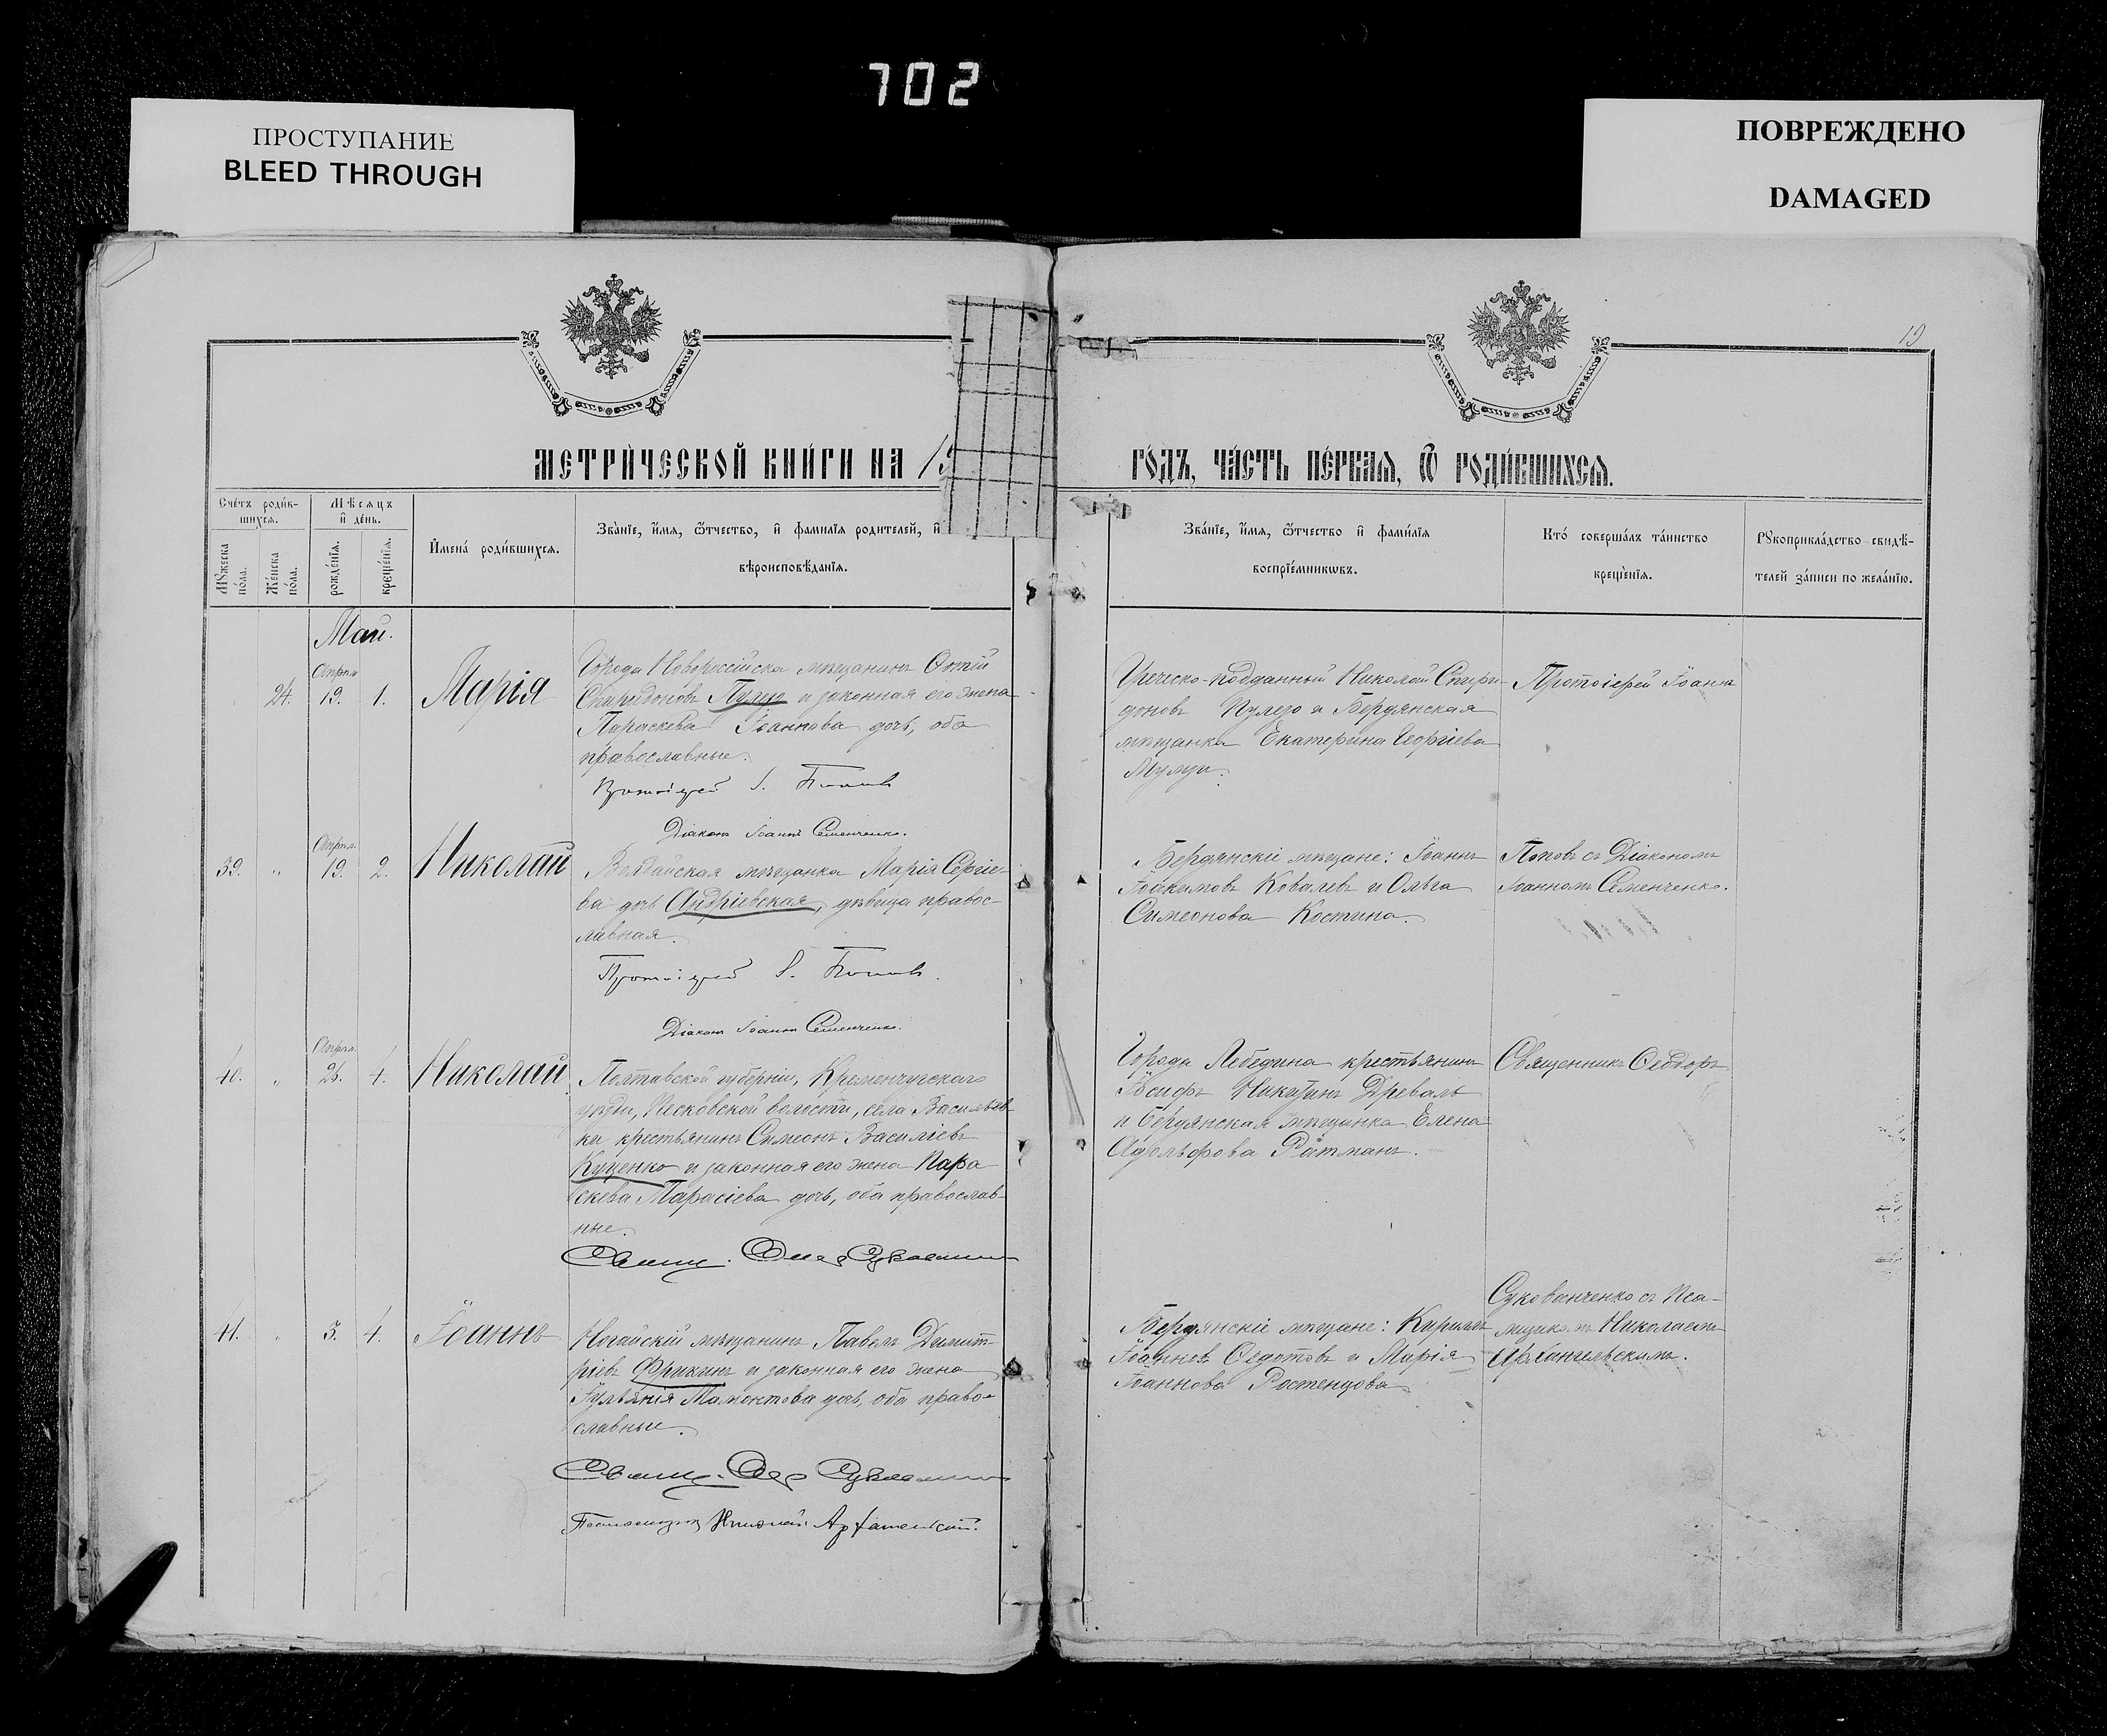 702
ПРОСТУПАНИЕ
BLEED THROUGH
ПОВРЕЖДЕНО
DAMAGED
19
МЕТРИ́ЧЕСКОЙ КНИ́ГИ НА 19
ГО́ДЪ, ЧА́СТЬ ПЕ́РВАѦ, Ѿ РОДИ́ВШИХСѦ.
Сче́тъ роди́в-
шихсѧ.
Мѣсѧцъ
и҆ де́нь.
Мꙋжеска по́ла.
Же́нска по́ла.
рожде́нїѧ.
креще́нїѧ.
И҆мена́ роди́вшихсѧ.
Зва́нїе, и҆́мѧ, ѻ҆́тчество, и҆ фамилїѧ родителей, и҆
вѣроисповѣданїѧ.
Зва́нїе, и҆́мѧ, ѻ҆́тчество и҆ фами́лїѧ
воспрїе́мникѡвъ.
Кто̀ соверша́лъ та́инство
креще́нїѧ.
Рꙋкоприкла́дство свидѣ́-
телей за́писи по жела́нїю.
Май.
24.
Апрѣл.
19.
1.
Марія
Города Новороссійска мѣщанинъ Фотій
Спиридоновъ и законная его жена
Параскева Іоаннова дочь, оба
православные.
Протоіерей І. Поповъ
Діаконъ Іоаннъ Семенченко.
Греческо-подданный Николай Спири-
доновъ Пулезо и Бердянская
мѣщанка Екатерина Георгіева
Протоіерей Іоаннъ
39.
"
Апрѣл.
19.
2.
Николай
Валдайская мѣщанка Марія Сергіе-
ва дочь Андріевская, дѣвица правос-
лавная.
Протоіерей І. Поповъ.
Діаконъ Іоаннъ Семенченко.
Бердянскіе мѣщане: Іоаннъ
Іоакимовъ Ковалевъ и Ольга
Симеонова Костина.
Поповъ съ Діакономъ
Іоанномъ Семенченко.
40.
"
Апрѣл.
4.
Николай
Полтавской губерніи, Кременчугскаго
уѣзда, Песковской волости, села Васильев-
ки крестьянинъ Симеонъ Василіевъ
Куценко и законная его жена Пара-
скева Тарасіева дочь, оба православ-
ные.
Города Лебедина крестьянинъ
Іосифъ Никитинъ Древаль
и бердянская мѣщанка Елена
Адольфова Ратманъ.
Священникъ Ѳеодоръ
41.
"
3.
4.
Іоаннъ
Ногайскій мѣщанинъ Павелъ Димит-
ріевъ Фрикинъ и законная его жена
Іуліанія Мамонтова дочь, оба право-
славные.
Псаломщикъ Николай Архангельскій.
Бердянскіе мѣщане: Кириллъ
Іоанновъ Ѳедотовъ и Марія
Іоаннова
Сукованченко съ Пса-
мщикомъ Николаемъ
Архангельскимъ.